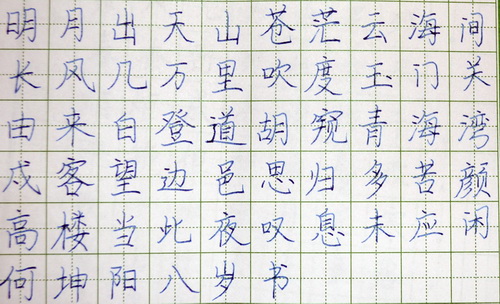 明月出天山苍茫云海间
长风几万里吹度玉门关
由来白登道胡窥青海湾
戍客望边邑思归多苦颜
高楼当此夜叹息未应闲
何坤阳八岁书